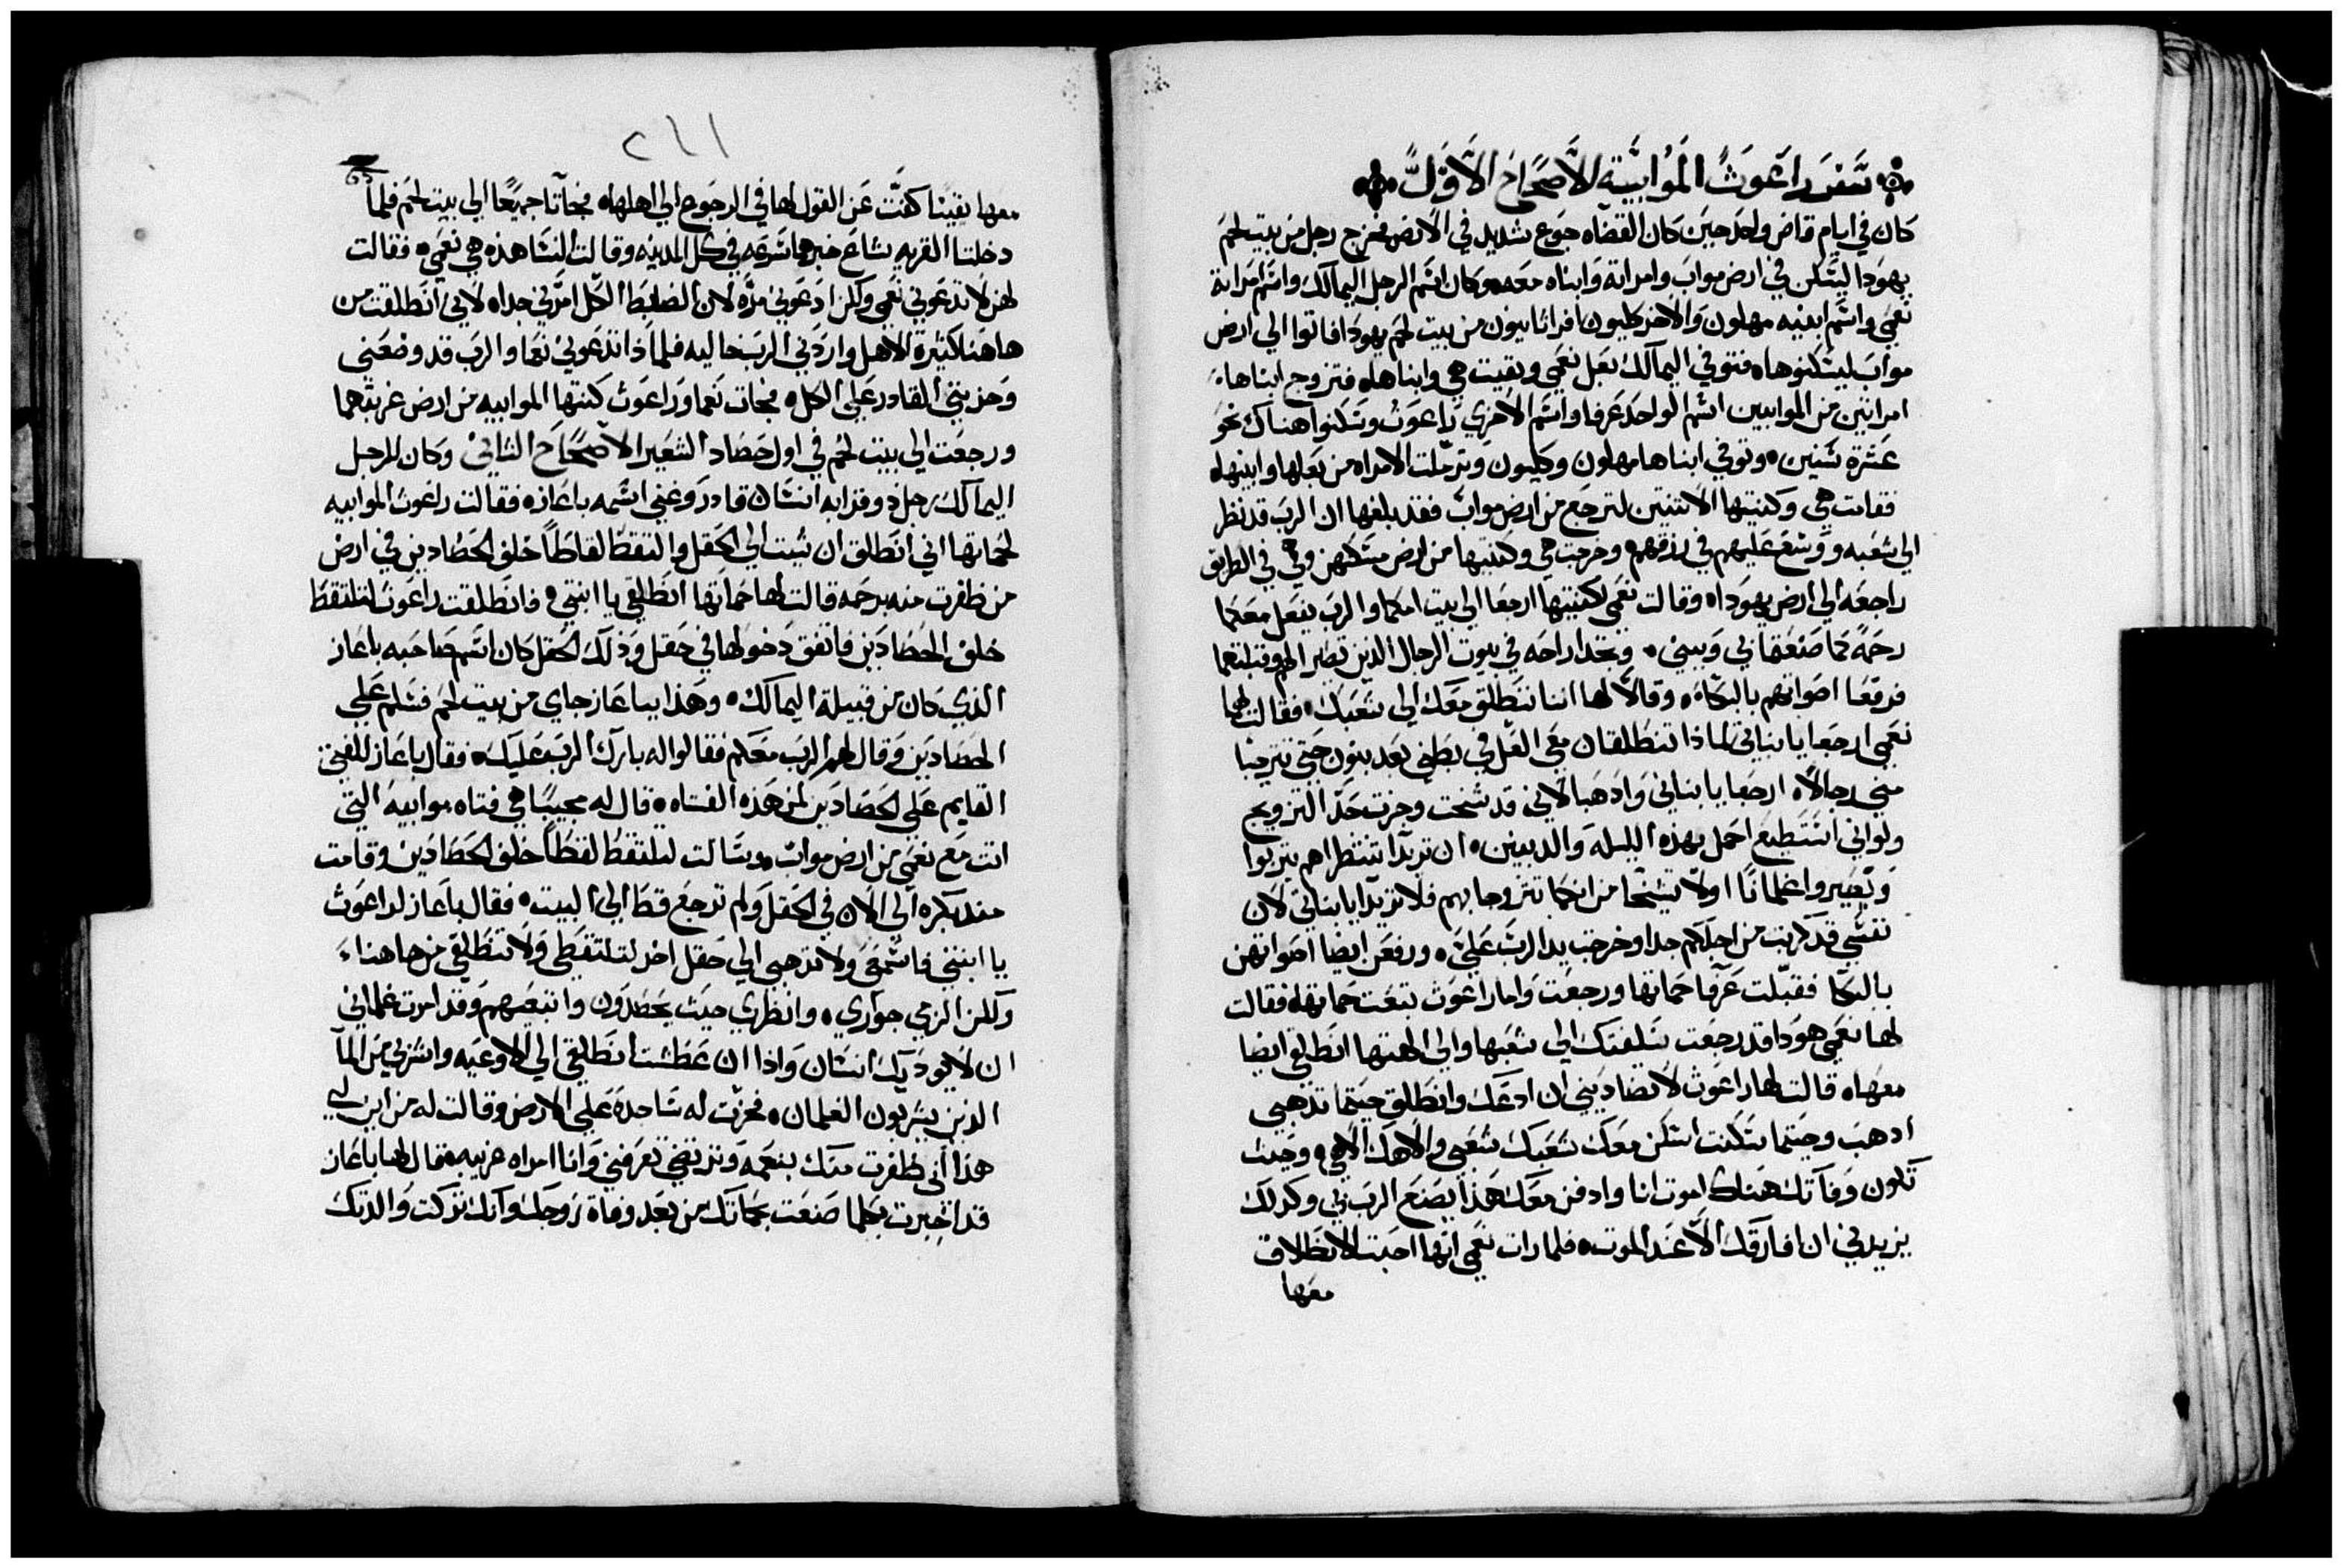 سفر راعوث الموابية الاصحاح الاول
كان في ايام قاض واحد حين كان القضاه جوع شديد في الارض فخرج رجل من بيت لحم
يهودا ليسكن في ارض مواب وامراته وابناه معه وكان اسم الرجل اليمالك واسم امراته
نعمي واسم ابنيه مهلون والاخر كليون افراثانيون من بيت لحم يهودا فاتوا الي ارض
مواب ليسكنوها فتوفي اليمالك بعل نعمي وبقيت هي وابناها فتزوج ابناها
امراتين من الموابيين اسم الواحد عرفا واسم الاخري راعوث وسكنوا هناك نحو
عشرة سنين وتوفي ابناها مهلون وكليون وترملت الامراه من بعلها وابنيها
فقامت هي وكنيتها الاثنتين لترجع من ارض مواب فقد بلغها ان الرب قد نظر
الي شعبه ووسع عليهم في رزقهم وخرجت هي وكنتيها من ارض مسكنهن وهي في الطريق
راجعه الي ارض يهودا وقالت نعمي لكنتيها ارجعا الي بيت امكما والرب يفعل معكما
رحمة كما صنعتما بي وببني وتجدا راحه في بيوت الرجال الذين تصير الهم وقبلتهما
فرفعا اصواتهم بالبكاء وقالا لها اننا ننطلق معك الي شعبك فقالت لهما
نعمي ارجعا يا بناتي لماذا تنطلقان معي العل في بطني بعد بنون حتي تترجيا
مني رجالا ارجعا يا بناتي واذهبا لاني قد شخت وجزت حد التزويج
ولو اني استطيع احمل بهذه الليله والد بنين ان تريدا تنتظراهم يتربوا
ويصيروا غلمانا اولا تشيخا من انكما تتزوجا بهم فلا تريدا يا بناتي لان
نفسي قد كربت من اجلكم جدا وخرجت يد الرب علي ورفعن ايضا اصواتهن
بالبكا فقبلت عرفا حماتها ورجعت واما راعوث تبعت حماتها فقالت
لها نعمي هودا قد رجعت سلفتك الي شعبها والي الهتها انطلقي ايضا
معها قالت لها راعوث لا تضاديني ان ادعك وانطلق حيثما تذهبي
اذهب وحيثما سكنت اسكن معك شعبك شعبي والاهك الاهي وحيث
تكون وفاتك هناك اموت انا وادفن معك هذا يصنع الرب بي وكذلك
يزيدني ان افارقك الا عند الموت فلما رات نعمي انها احبت الانطلاق
معها
٢١١
معها يقينا كفت عن القول لها في الرجوع الي اهلها فجاتا جميعا الي بيت لحم فلما
دخلتا القريه شاع خبرهما سرعه في كل المدينه وقالت النسا هذه هي نعمي فقالت
لهن لا تدعوني نعمي ولكن ادعوني مره لان الضابط الكل امرني جدا لاني انطلقت من
هاهنا كثيرة الاهل واردني الرب خاليه فلماذا تدعوني نعما والرب قد وضعني
وحزنني القادر علي الكل فجات نعما وراعوث كنتها الموابيه من ارض غربتهما
ورجعت الي بيت لحم في اول حصاد الشعير الاصحاح الثاني وكان للرجل
اليمالك رجل ذو قرابه انسان قادر وغني اسمه باعاز فقالت راعوث الموابيه
لحماتها اني انطلق ان شيت الي الحقل والتقط لقاطا خلف الحصادين في ارض
من ظفرت منه برحمه قالت لها حماتها انطلقي يا ابنتي فانطلقت راعوث لتلتقط
خلف الحصادين فاتفق دخولها في حقل وذلك الحقل كان اسم صاحبه باعاز
الذي كان من قبيلة اليمالك وهذا بباعاز جاي من بيت لحم فسلم علي
الحصادين وقال لهم الرب معكم فقالوا له بارك الرب عليك فقال باعاز للفتي
القايم علي الحصادين لمن هذه الفتاه قال له مجيبا هي فتاه موابيه التي
اتت مع نعمي من ارض مواب وسالت لتلتقط لقطا خلف الحصادين وقامت
منذ بكره الي الان في الحقل ولم ترجع قط الي البيت فقال باعاز لراعوث
يا ابنتي فاسمعي ولا تذهبي الي حقل اخر لتلتقطي ولا تنطلقي من هاهنا
ولكن الزمي جواري وانظري حيث يحصدون واتبعيهم وقد امرت غلماني
ان لا يوديك انسان واذا ان عطشت انطلقي الي الاوعيه واشربي من الما
الذين يشربون الغلمان فخرت له ساجدة علي الارض وقالت له من اين لي
هذا اني ظفرت منك بنعمه وترتضي تعرفني وانا امراه غريبه فقال لها باعاز
قد اخبرت بكلما صنعت بحماتك من بعد وفاة زوجك وانك تركت والدتك